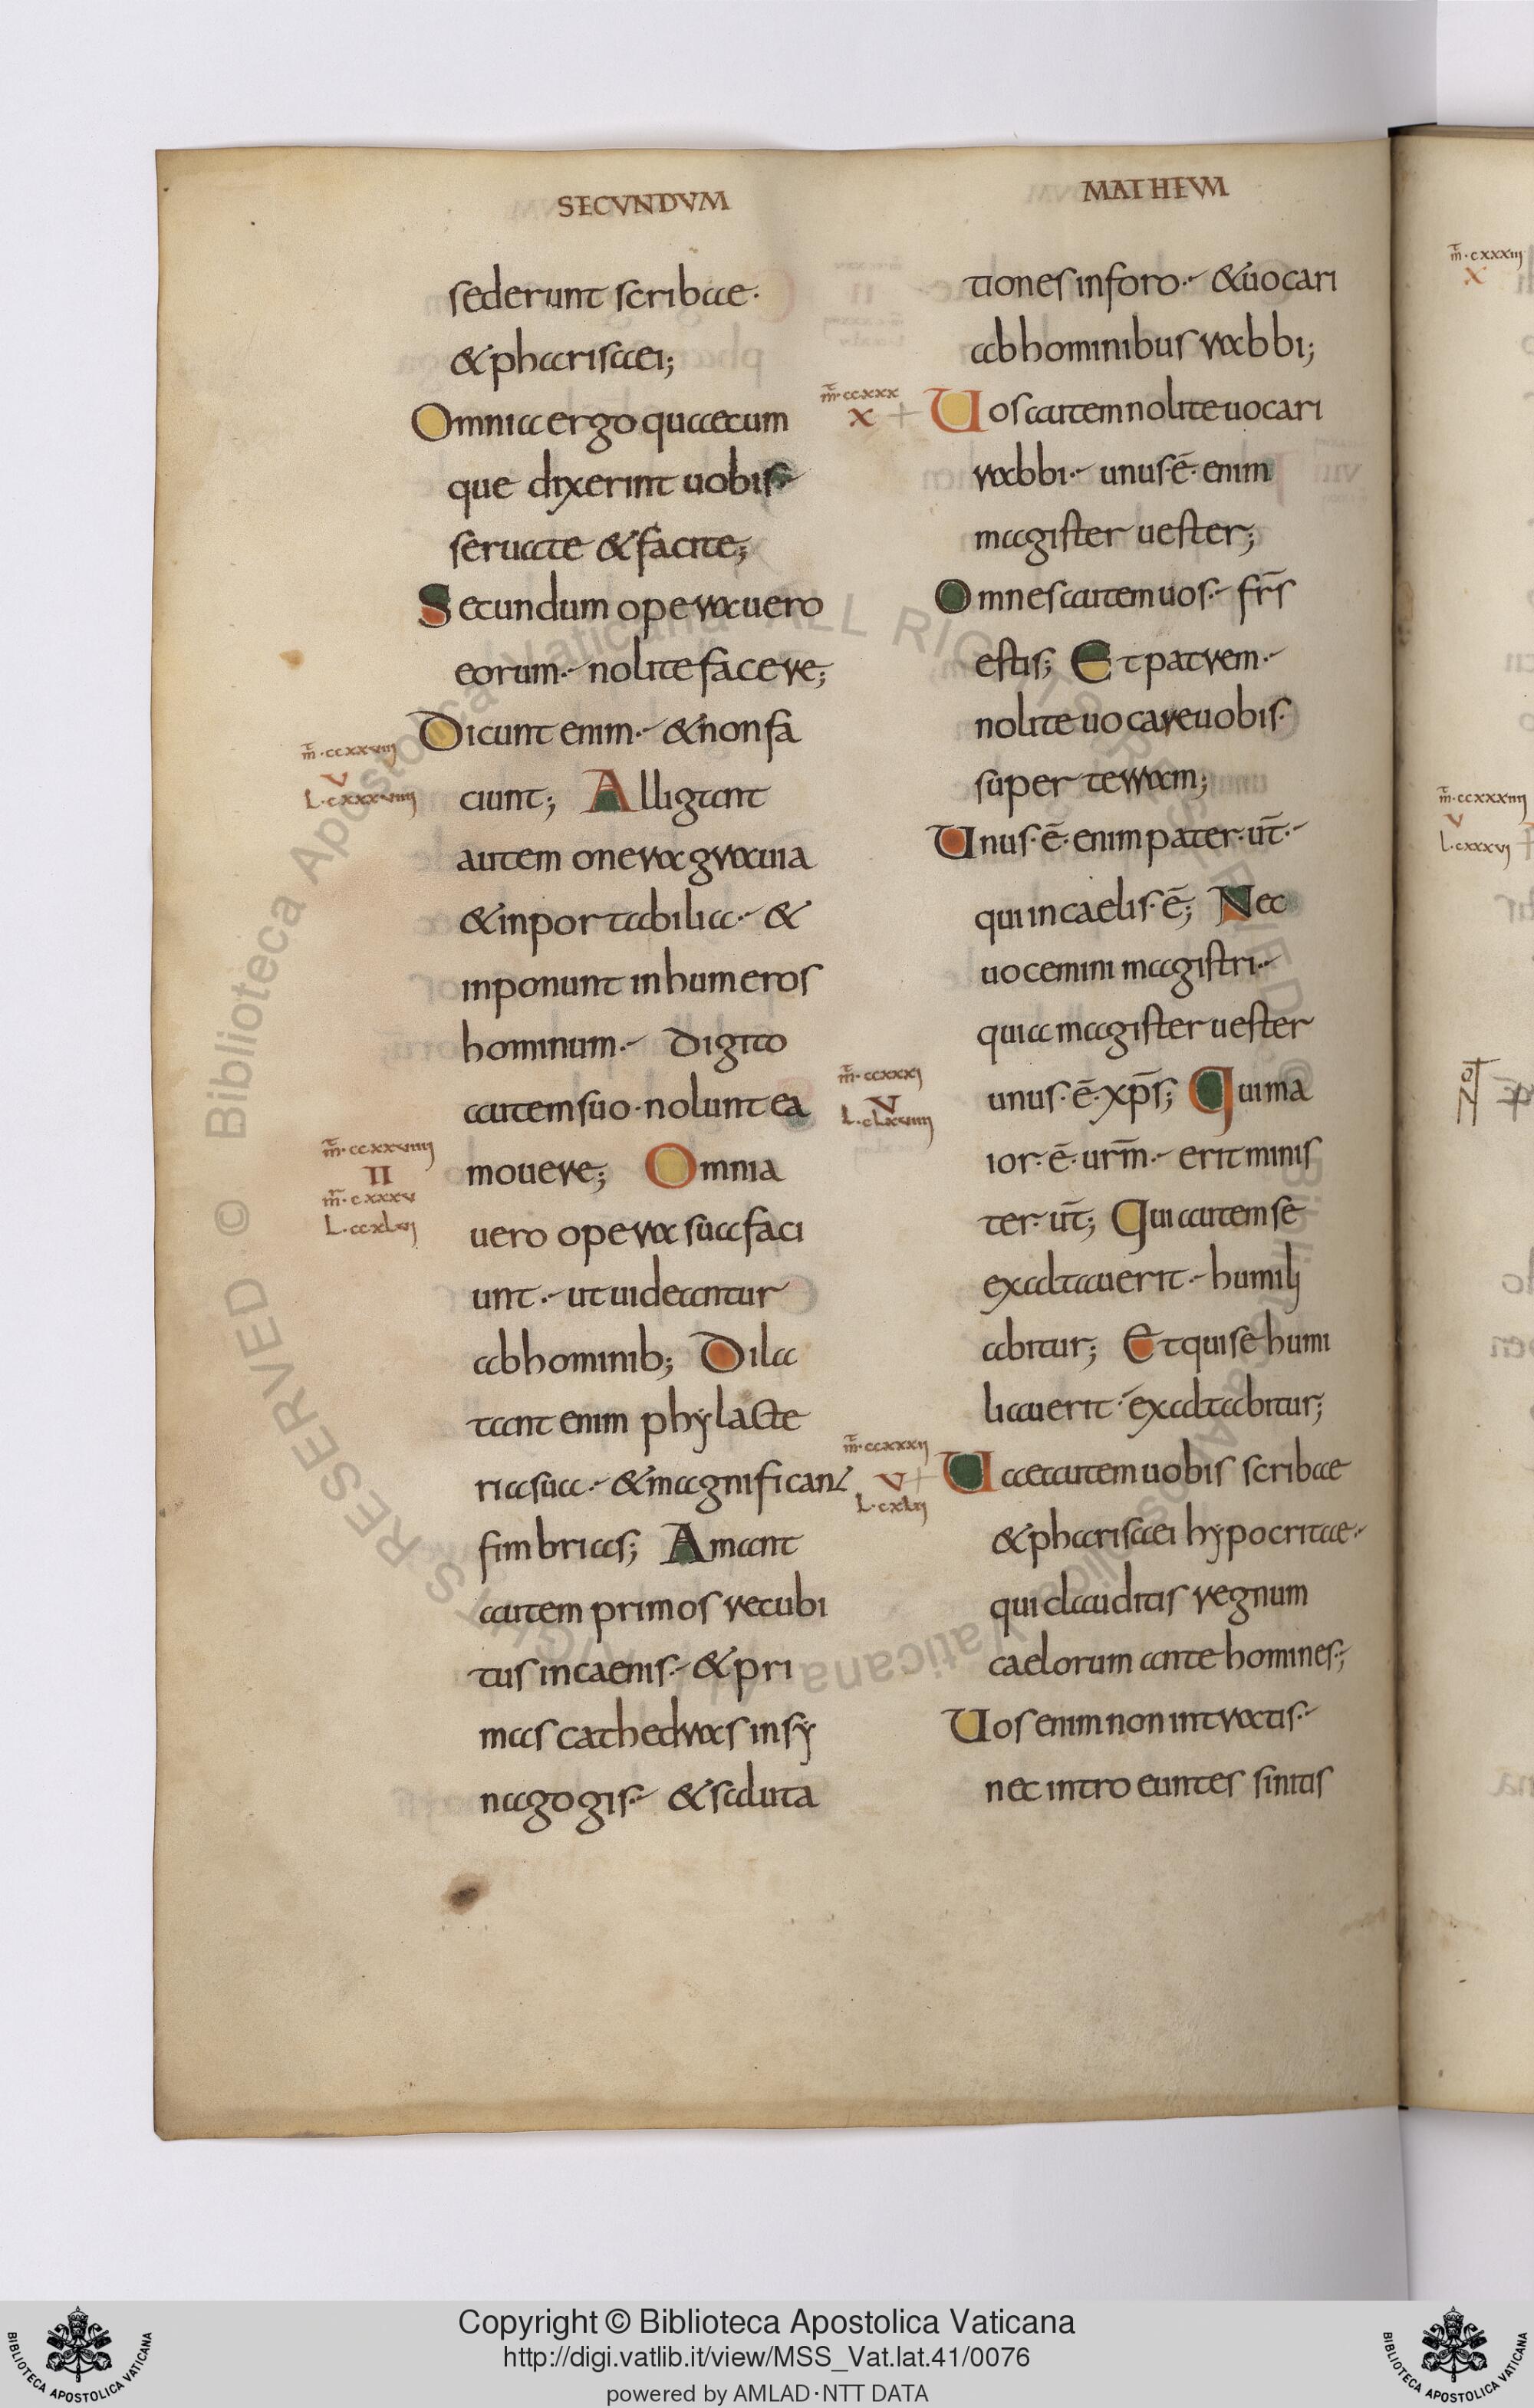 SECVNDVM
sederunt scribae·
&pharisaei;
Omnia ergo quaecum
que dixerint uobis·
seruate & facite;
Secundum opera uero
eorum·nolite facere;
Dicunt enim·&non fa
ciunt; Alligant
autem onera grauia
&inportabilia·&
inponunt inhumeros
hominum· Digito
autem suo·nolunt ea
mouere; Omnia
uero opera sua faci
unt·ut uideantur
ab hominib; Dila
tant enim phylacte
ria sua·&magnificant
fimbrias; Amant
autem primos recubi
tus incaenis·&pri
mas cathedras insy
nagogis·&saluta
m̄·ccxxviii
v
L·cxxxviiii
m̄·ccxxviiii
II
m̄·cxxxv
L·ccxlvi
MATHEVM
tiones inforo·&uocari
ab hominibus rabbi;
Uos autem nolite uocari
rabbi·unus·ē·enim
magister uester;
Omnes autem uos·fr̄s
estis; Et patrem·
nolite uocare uobis·
super terram;
Unus·ē·enim pater·ur̄·
qui in caelis·ē; Nec
uocemini magistri·
quia magister uester
unus·ē·xp̄s; Qui ma
ior·ē·urm̄·erit minis
ter·ur̄; Qui autem se
exaltauerit·humili
abitur; Et qui se humi
liauerit·exaltabitur;
Uae autem uobis scribae
&pharisaei hypocritae·
qui clauditis regnum
caelorum ante homines;
Uos enim non intratis·
nec introeuntes sinitis
m̄·ccxxx
x
m̄·ccxxxi
V
L·clxviiii
m̄·ccxxxii
v
L·cxlii
m̄·cxxxiii
x
m̄·ccxxxiiii
v
L·cxxxvi
Copyright © Biblioteca Apostolica Vaticana
http://digi.vatlib.it/view/MSS_Vat.lat.41/0076
powered by AMLAD·NTT DATA
BIBLIOTECA APOSTOLICA VATICANA
BIBLIOTECA APOSTOLICA VATICANA
© Biblioteca Apostolica Vaticana ALL RIGHTS RESERVED © Biblioteca Apostolica Vaticana ALL RIGHTS RESERVED